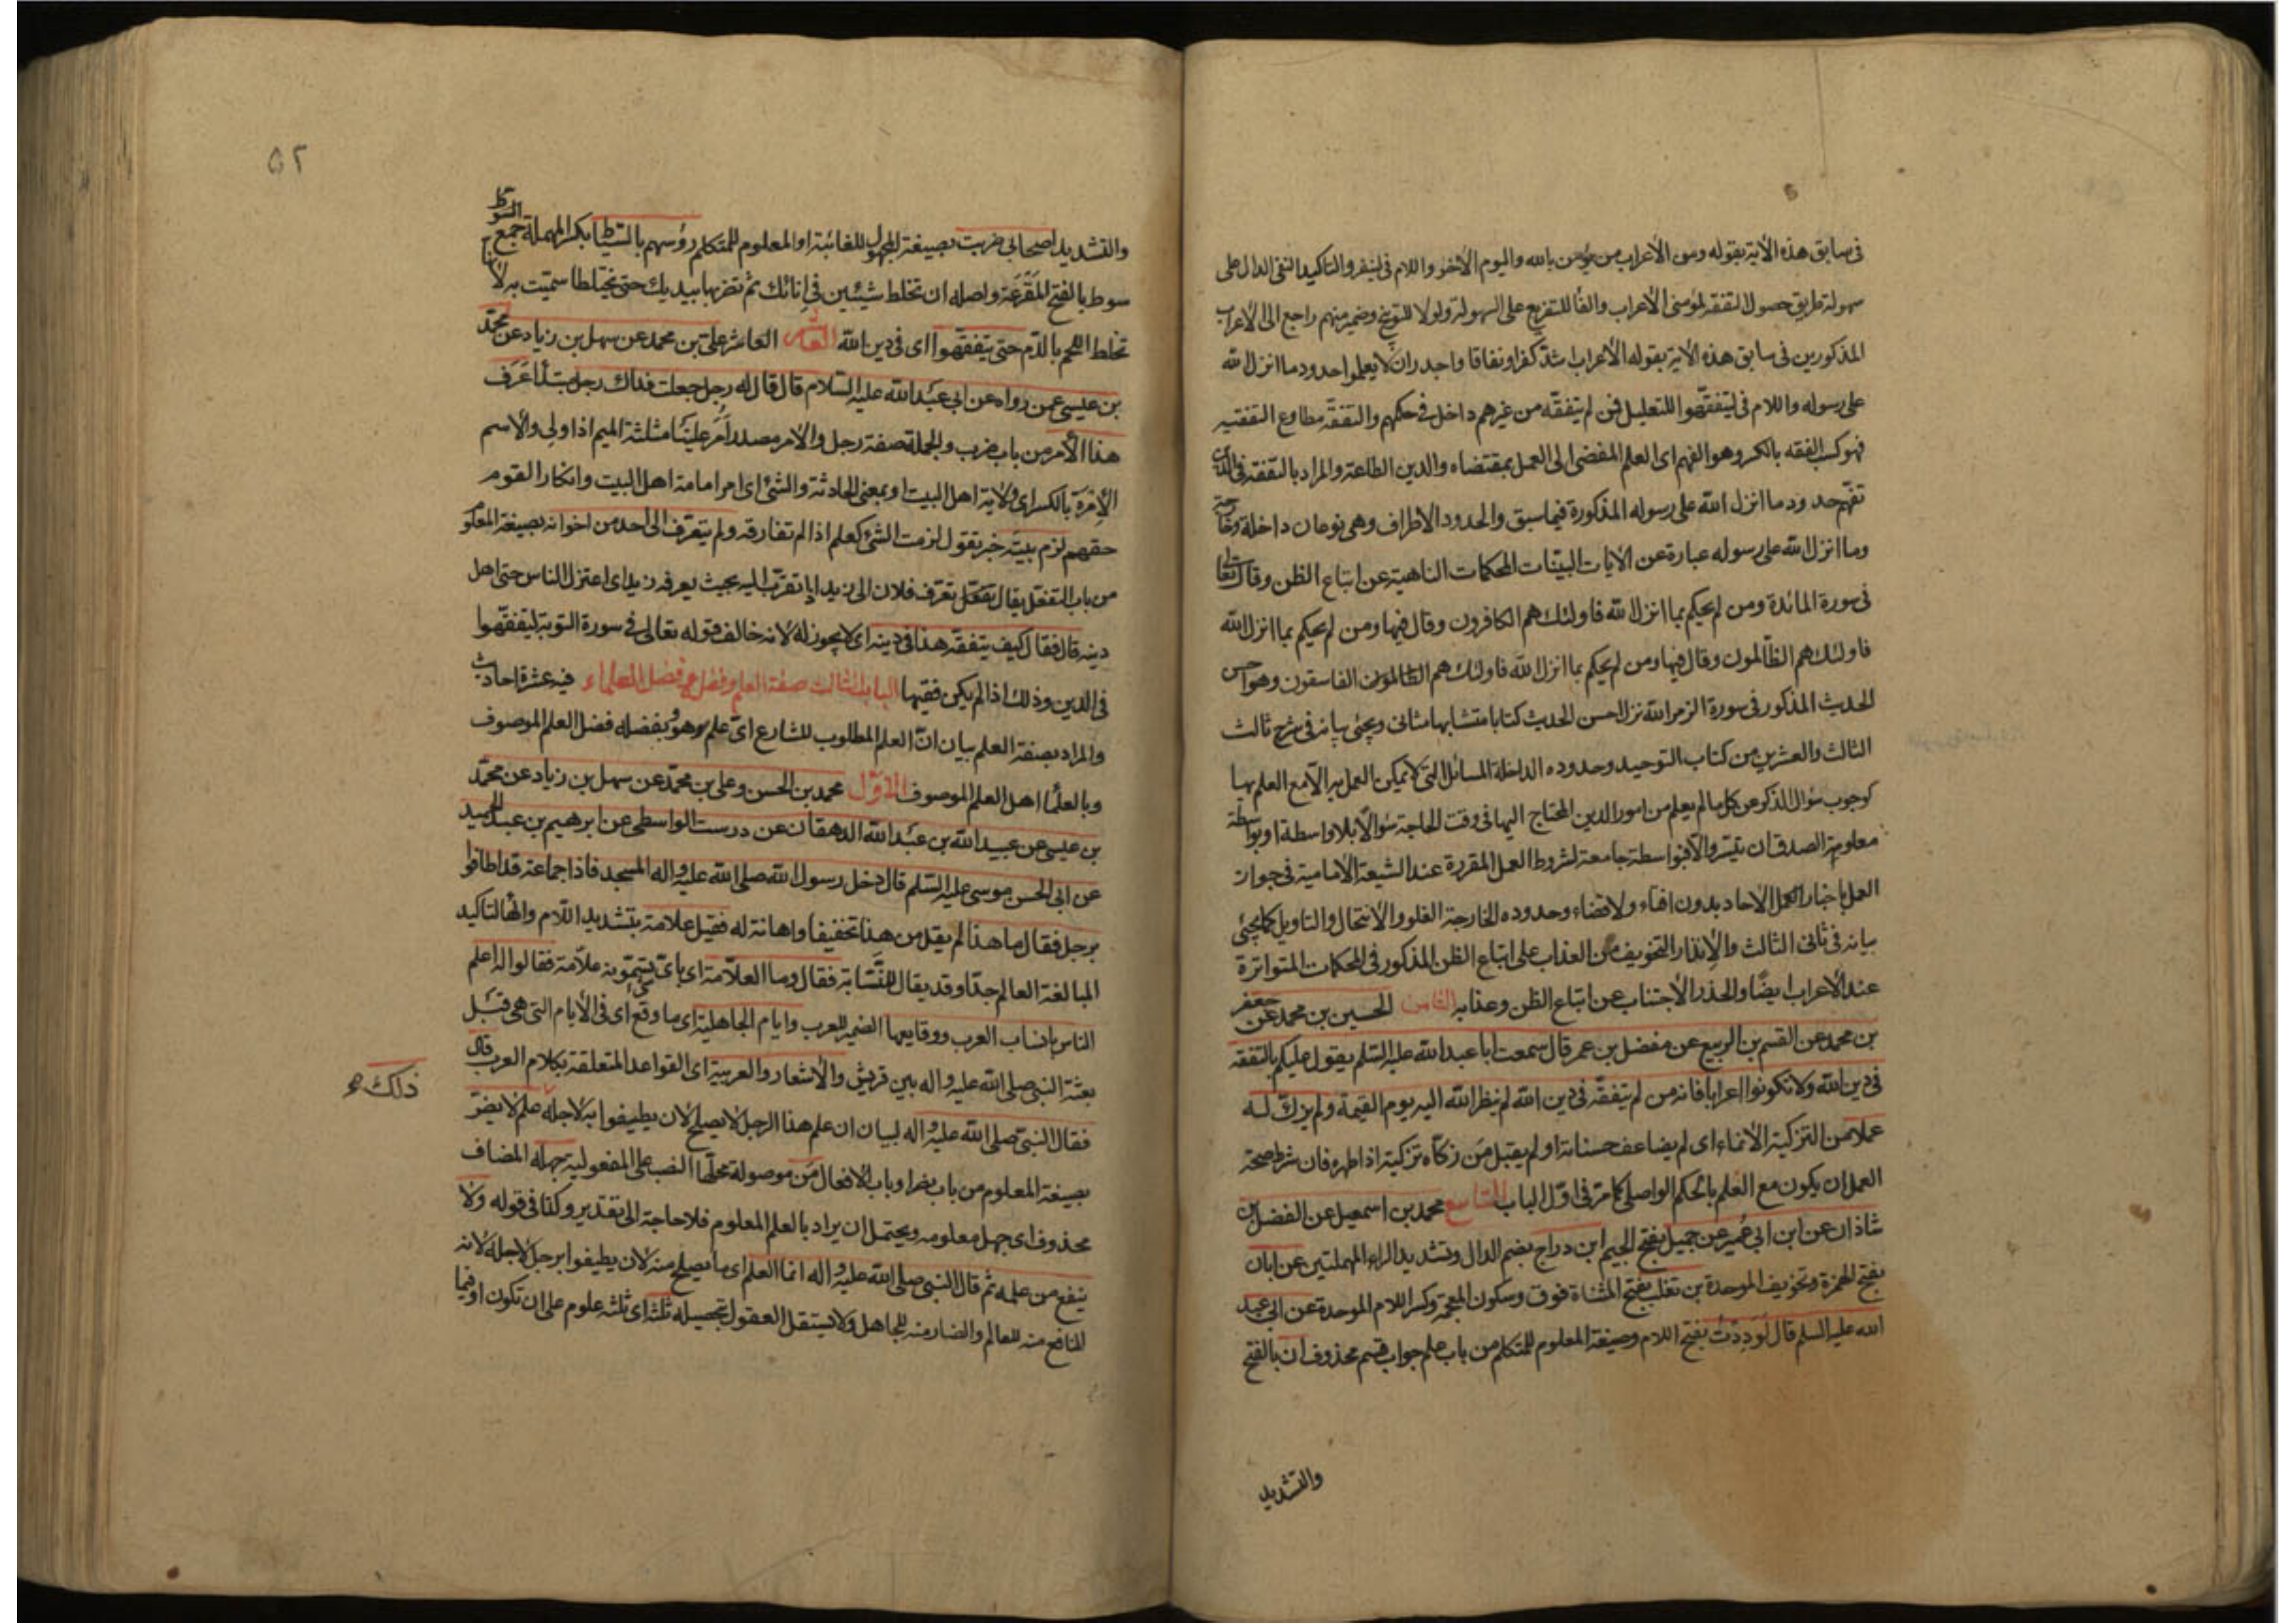 فى سابق هذه الآية بقوله ومن الاعراب من يؤمن بالله واليوم الآخر واللام فى لينفروا لتاكيد النفى الدال على
سهولة طريق حصول التفقه لمؤمنى الاعراب والفا للتفريع على السهولة ولولا للتوبيخ وضمير منهم راجع الى الاعراب
المذكورين فى سابق هذه الآية بقوله الاعراب اشد كفرا ونفاقا واجدر ان لا يعلموا حدود ما انزل الله
على رسوله واللام فى ليتفقهوا للتعليل فمن لم يتفقه من غيرهم داخل فى حكمهم والتفقه مطاوع التفقيه
فهو كسب الفقه بالكسر وهو الفهم اى العلم المفضى الى العمل بمقتضاه والدين الطاعة والمراد بالتفقه فى الدين
تفهم حدود ما انزل الله على رسوله المذكورة فيما سبق والحدود الاطراف وهى نوعان داخلة وخارجة
وما انزل الله على رسوله عبارة عن الآيات البينات المحكمات الناهية عن اتباع الظن وقال تعالى
فى سورة المائدة ومن لم يحكم بما انزل الله فاولئك هم الكافرون وقال فيها ومن لم يحكم بما انزل الله
فاولئك هم الظالمون وقال فيها ومن لم يحكم بما انزل الله فاولئك هم الفاسقون وهو احسن
الحديث المذكور فى سورة الزمر الله نزل احسن الحديث كتابا متشابها مثانى ويجئ بيانه فى شرح ثالث
الثالث والعشرين من كتاب التوحيد وحدوده الداخلة المسائل التى لا يمكن العمل به الا مع العلم بها
كوجوب سؤال الذكر عن كل ما لم يعلم من امور الدين المحتاج اليها فى وقت الحاجة سؤالا بلا واسطة او بواسطة
معلومة الصدق ان تيسر والا فبواسطة جامعة لشروط العمل المقررة عند الشيعة الامامية فى جواز
العمل باخبار الآحاد بدون افتاء ولا قضاء وحدوده الخارجة الغلو والانتحال والتاويل كما يجئ
بيانه فى ثانى الثالث والانذار التخويف من العذاب على اتباع الظن المذكور فى المحكمات المتواترة
عند الاعراب ايضا والحذر الاجتناب عن اتباع الظن وعذابه الثامن الحسين بن محمد عن جعفر
بن محمد عن القسم بن الربيع عن مفضل بن عمر قال سمعت ابا عبد الله عليه السلم يقول عليكم بالتفقه
فى دين الله ولا تكونوا اعرابا فانه من لم يتفقه فى دين الله لم ينظر الله اليه يوم القيمة ولم يزك له
عملا من التزكية الانماء اى لم يضاعف حسناته او لم يقبل من زكاه تزكية اذا طهره فان شرط صحة
العمل ان يكون مع العلم بالحكم الواصلى كما مر فى اول الباب التاسع محمد بن اسمعيل عن الفضل بن
شاذان عن ابن ابى عمير عن جميل بفتح الجيم ابن دراج بضم الدال وتشديد الراء المهملتين عن ابان
بفتح الهمزة وتخفيف الموحدة بن تغلب بفتح المثناة فوق وسكون المعجمة وكسر اللام الموحدة عن ابى عبد
الله عليه السلم قال لوددت بفتح اللام وصيغة المعلوم للمتكلم من باب علم جواب قسم محذوف ان بالفتح
والتشديد
٥٢
والتشديد اصحابى ضربت بصيغة المجهول للغائبة او المعلوم للمتكلم رؤسهم بالسياط بكسر المهملة جمع السوط
سوط بالفتح المقرعة واصله ان تخلط شيئين فى انائك ثم تضربها بيديك حتى يختلطا سميت به لانها
تخلط اللحم بالدم حتى يتفقهوا اى فى دين الله العاشر على بن محمد عن سهل بن زياد عن محمد
بن عيسى عمن رواه عن ابى عبد الله عليه السلام قال قال له رجل جعلت فداك رجل عرف
هذا الامر من باب ضرب والجملة صفة رجل والامر مصدر امر علينا مثلثة الميم اذا ولى والاسم
الامرة بالكسر اى ولاية اهل البيت او بمعنى الحادثة والشئ اى امر امامة اهل البيت وانكار القوم
حقهم لزم بيته خبر تقول لزمت الشئ كعلم اذا لم تفارقه ولم يتعرف الى احد من اخوانه بصيغة المعلوم
من باب التفعل يقال تعرف فلان الى زيد اذا تقرب اليه بحيث يعرفه زيد اى اعتزل الناس حتى اهل
دينه قال فقال كيف يتفقه هذا فى دينه اى لا يجوز له لانه خالف قوله تعالى فى سورة التوبة ليتفقهوا
فى الدين وذلك اذا لم يكن فقيها الباب الثالث صفة العلم وفضله وفضل العلماء فيه عشرة احاديث
والمراد بصفة العلم بيان ان العلم المطلوب للشارع اى علم هو وبفضله فضل العلم الموصوف
وبالعلما اهل العلم الموصوف الاول محمد بن الحسن وعلى بن محمد عن سهل بن زياد عن محمد
بن عيسى عن عبيد الله بن عبد الله الدهقان عن درست الواسطى عن ابرهيم بن عبد الحميد
عن ابى الحسن موسى عليه السلم قال دخل رسول الله صلى الله عليه واله المسجد فاذا جماعة قد اطافوا
برجل فقال ما هذا لم يقل من هذا تخفيفا واهانة له فقيل علامة بتشديد اللام والها لتاكيد
المبالغة العالم جدا وقد يقال للنسابة فقال وما العلامة اى باى شئ تسمونه علامة فقالوا له اعلم
الناس بانساب العرب ووقايعها الضمير للعرب وايام الجاهلية اى ما وقع اى فى الايام التى هى قبل
بعثة النبى صلى الله عليه واله بين قريش والاشعار والعربية اى القواعد المتعلقة بكلام العرب قال
فقال النبى صلى الله عليه واله لبيان ان علم هذا الرجل لا يصلح لان يطيفوا به لاجله علم لا يضر
ذلك
بصيغة المعلوم من باب نصر او باب الافعال من موصولة محلها النصب على المفعولية جهله المضاف
محذوف اى جهل معلومه ويحتمل ان يراد بالعلم المعلوم فلا حاجة الى تقدير وكذا فى قوله ولا
ينفع من علمه ثم قال النبى صلى الله عليه واله انما العلم اى ما يصلح منه لان يطيفوا برجل لاجله لانه
النافع منه للعالم والضار منه للجاهل ولا يستقل العقول بتحصيله ثلثة اى ثلثه علوم على ان تكون او فيما